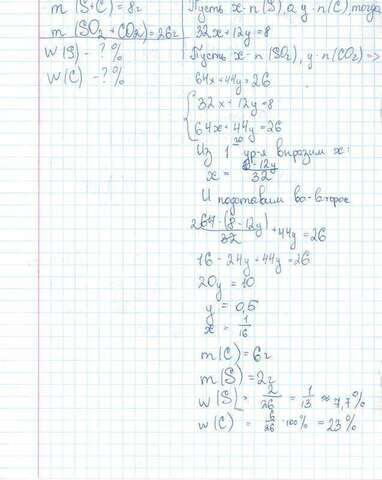 m (S+C) = 8г
m (SO2 + CO2) = 26г
W (S) - ? %
W (C) - ? %
Пусть x - n (S), а y - n (C), тогда
32x + 12y = 8
Пусть x - n (SO2), y - n (CO2) =>
64x + 44y = 26
32x + 12y = 8
64x + 44y = 26
Из 1 ур-я выразим x:
x = 8 - 12y / 32
И подставим во второе
64 · (8 - 12y) / 32 + 44y = 26
16 - 24y + 44y = 26
20y = 10
y = 0,5
x = 1/16
m (C) = 6г
m (S) = 2г
W (S) = 2/26 = 1/13 ≈ 7,7%
W (C) = 6/26 · 100% = 23%